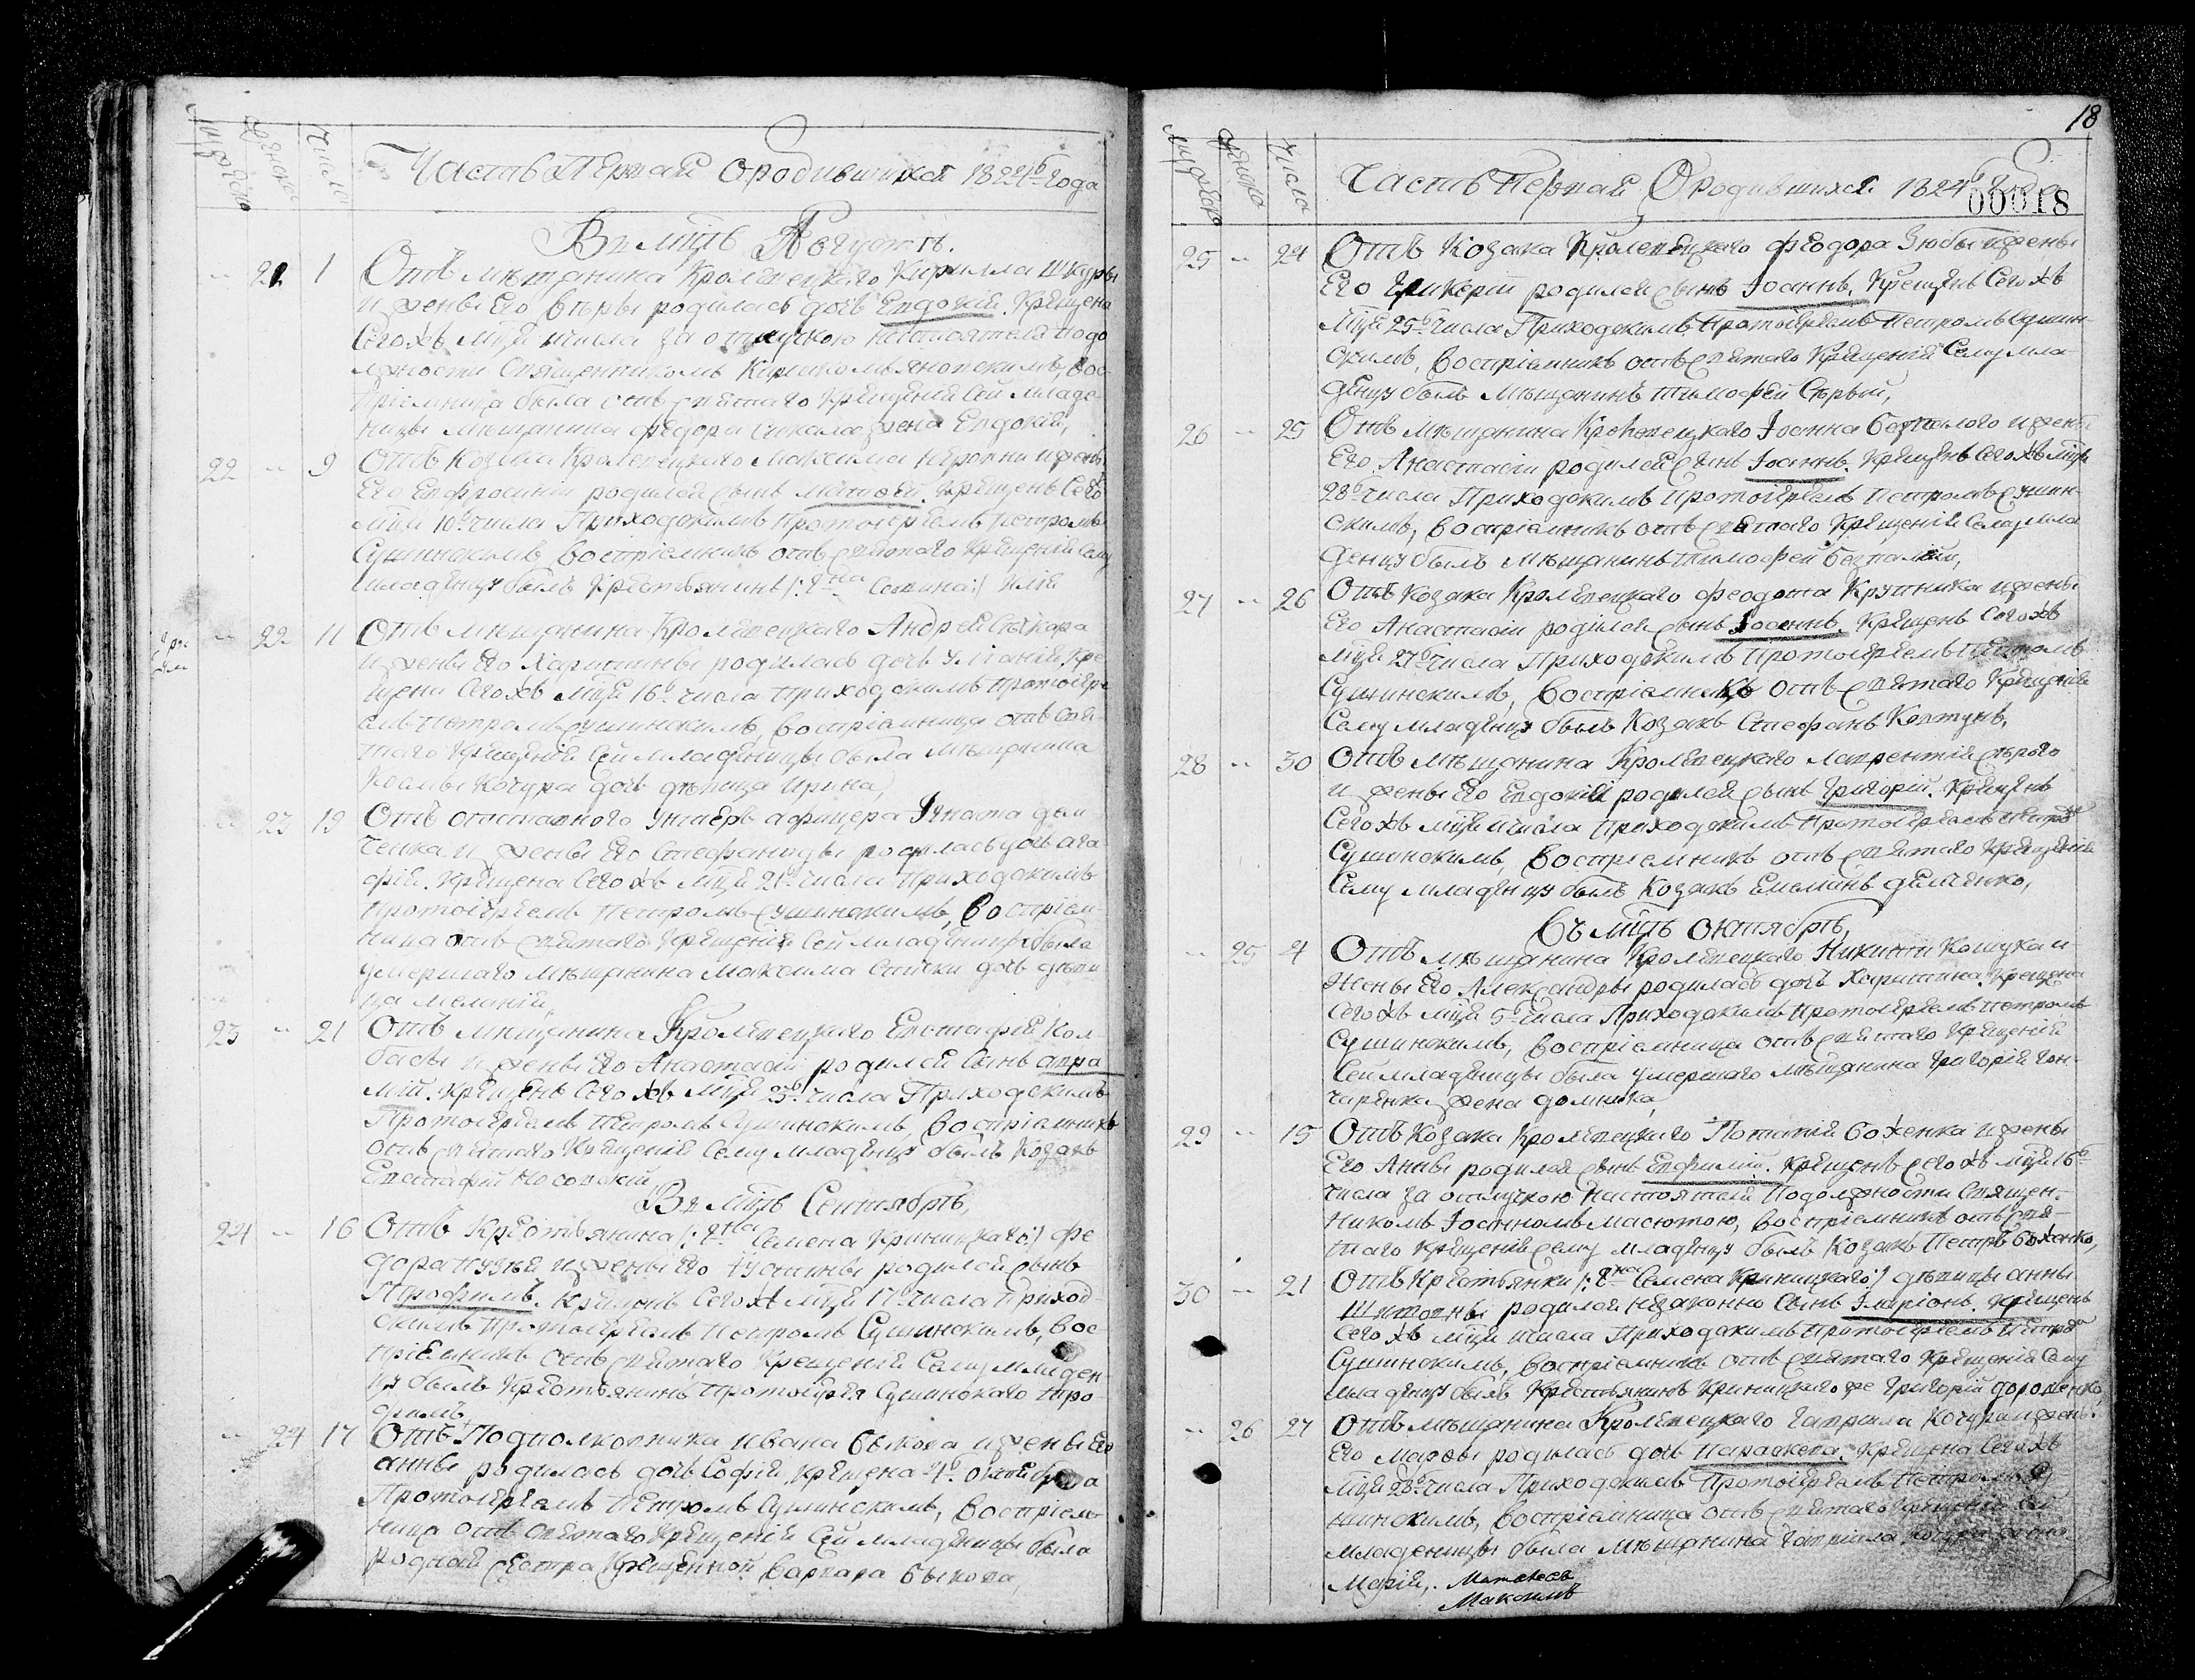 мужеска
женска
Числа
Часть Первая о родившихся 1824го года
Въ мцѣ Августѣ.
-- 21 1 Отъ мѣщанина Кролевецкаго Кирилла Шкуры
и жены Его Вѣры родилась дочь Евдокія. Крещена
Сегожъ мця и числа за отлучкою настоятеля подо
лжности Священникомъ Кириломъ Яновскимъ, вос
пріемница была отъ святаго Крещенія Сей младе
ницы мѣщанина Федора жена Евдокія,
22 -- 9 Отъ Козака Кролевецкаго Максима и жены
Его Евфросиніи родился сынъ Матвей. Крещенъ Сего
мця 10го числа Приходскимъ Протоіереемъ Петромъ
Сушинскимъ воспріемникъ отъ святаго Крещенія Сему
младенцу былъ Крестьянинъ
-- 22 11 Отъ мѣщанина Кролевецкаго Андрея
и жены Его Харитины родилась дочь Уліанія. Кре
щена Сегожъ мця 16го числа Приходскимъ Протоіере
емъ Петромъ Сушинскимъ, воспріемница отъ Свя
таго Крещенія Сей младеницы была мѣщанина
Кочура дочь дѣвица Ирина,
-- 23 19 Отъ отставного Унтеръ афицера Игната дом
ченка и жены Его Стефаниды родилась дочь Ага
фія. Крещена Сегожъ мця 21го числа Приходскимъ
Протоіереемъ Петромъ Сушинскимъ, воспріем
ница отъ святаго Крещенія Сей младеницы была
умершаго мѣщанина Максима дочь дѣви
ца Меланія,
23 -- 21 Отъ мѣщанина Кролевецкаго Евстафія Кол
басы и жены Его Анастасіи родился Сынъ Авра
мій. Крещенъ Сегожъ мця 23го числа Приходскимъ
Протоіереемъ Петромъ Сушинскимъ, воспріемникъ
отъ святаго Крещенія Сему младенцу былъ Козакъ
Евстафій Носовскій,
Въ мцѣ Сентябрѣ,
24 -- 16 Отъ Крестьянина /: Семена Криницкаго :/ Фе
дора и жены Его Іустины родился сынъ
Трофимъ. Крещенъ Сегожъ мця 17 числа Приход
скимъ Протоіереемъ Петромъ Сушинскимъ, вос
пріемникъ отъ святаго Крещенія Сему младен
цу былъ Крестьянинъ Протоіерея Сушинскаго Тро
фимъ
-- 24 17 Отъ Подполковника Ивана Быкова и жены Его
Анны родилась дочь Софія, Крещена 4го Октября
Протоіереемъ Петромъ Сушинскимъ, воспріем
ница отъ святаго Крещенія Сей младеницы была
родная сестра Крещенной Варвара Быкова,
18
00018
мужеска
женска
Числа
Часть Первая О родившихся 1824го Года
25 -- 24 Отъ Козака Кролевецкаго Феодора Зюбы и жены
Его Гликеріи родился сынъ Іоаннъ. Крещенъ Сегожъ
мця 25го числа Приходскимъ Протоіереемъ Петромъ Сушин
скимъ, воспріемникъ отъ святаго Крещенія Сему мла
денцу былъ Мѣщанинъ Тимофей Сѣрый,
26 -- 25 Отъ мѣщанина Кролевецкаго Іоанна Безпалого и жены
Его Анастасіи родился сынъ Іоаннъ. Крещенъ Сегожъ мця
28го числа Приходскимъ Протоіереемъ Петромъ Сушин
скимъ, воспріемникъ отъ святаго Крещенія Сему мла
денцу былъ Мѣщанинъ Тимофей Безпалый,
27 -- 26 Отъ Козака Кролевецкаго Феодота Крупника и жены
Его Анастасіи родился сынъ Іоаннъ. Крещенъ Сегожъ
мця 27го числа Приходскимъ Протоіереемъ Петромъ
Сушинскимъ, воспріемникъ отъ святаго Крещенія
Сему младенцу былъ Козакъ Стефанъ Ковтунъ,
28 -- 30 Отъ мѣщанина Кролевецкаго Лаврентія Сѣрого
и жены Его Евдокіи родился сынъ Григорій. Крещенъ
Сегожъ мця и числа Приходскимъ Протоіереемъ Петромъ
Сушинскимъ, воспріемникъ отъ святаго Крещенія
Сему младенцу былъ Козакъ Емеліанъ Демченко,
Въ мцѣ Октябрѣ,
-- 25 4 Отъ мѣщанина Кролевецкаго Никиты Кошука и
Жены Его Александры родилась дочь Харитина. Крещена
Сегожъ мця 5го числа Приходскимъ Протоіереемъ Петромъ
Сушинскимъ, воспріемница отъ святаго Крещенія
Сей младеницы была умершаго мѣщанина Григорія Гон
чаренка жена Домника,
29 -- 15 Отъ Козака Кролевецкаго Потапія Боженка и жены
Его Анны родился сынъ Евфимій. Крещенъ сегожъ мця 16го
числа за отлучкою настоятеля Подолжности Священ
никомъ Іоанномъ Масютою, воспріемникъ отъ свя
таго Крещенія сему младенцу былъ Козакъ Петръ Боженко,
30 -- 21 Отъ Крестьянки /: Семена Криницкаго :/ дѣвицы Анны
родился незаконно Сынъ Іларіонъ. Крещенъ
сегожъ мця и числа Приходскимъ Протоіереемъ Петромъ
Сушинскимъ, воспріемникъ отъ святаго Крещенія Сему
младенцу былъ Крестьянинъ Криницкаго же Григорій Дорошенко,
-- 26 27 Отъ мѣщанина Кролевецкаго Гавріила Кочури и жены
Его Марфы родилась дочь Параскева. Крещена Сегожъ
мця 28го числа Приходскимъ Протоіереемъ Петромъ Су
шинскимъ, воспріемница отъ святаго Крещенія Сей
младеницы была мѣщанина Гавріила
Марія,